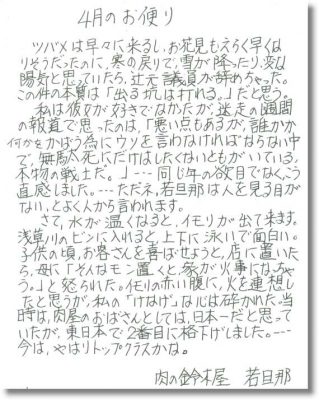 4月のお便り
ツバメは早々に来るし、お花見もえらく早くな
りそうだったのに、寒の戻りで、雪が降ったり、変な
陽気と思っていたら、辻元議員が辞めちゃった。
この件の本質は「出る杭は打れる。」だと思う。
私は彼女が好きでなかたが、迷走の1週間
の報道で思ったのは、「悪い点もあるが、誰かが
何かをかばう為にウソを言わなければならない中
で、無駄死にだけはしたくないともがいている、
本物の戦士だ。」---同じ年の欲目でなく、こう
直感しました。---ただネ、若旦那は人を見る目が
ない、とよく人から言われます。
さて、水が温くなると、イモリが出て来ます。
浅草川のビンに入れると、上下に泳いで面白い。
子供の頃、お客さんを喜ばせようと、店に置いた
ら、母に「そんなモン置くと家が火事になっちゃ
う。」と怒られた。イモリの赤い腹に、火を連想し
たと思うが、私の「けなげ」な心は砕かれた。当
時は、肉屋のおばさんとしては、日本一だと思って
いたが、東日本で2番目に格下げしました。---
今は、やはりトップクラスかな。
肉の鈴木屋 若旦那